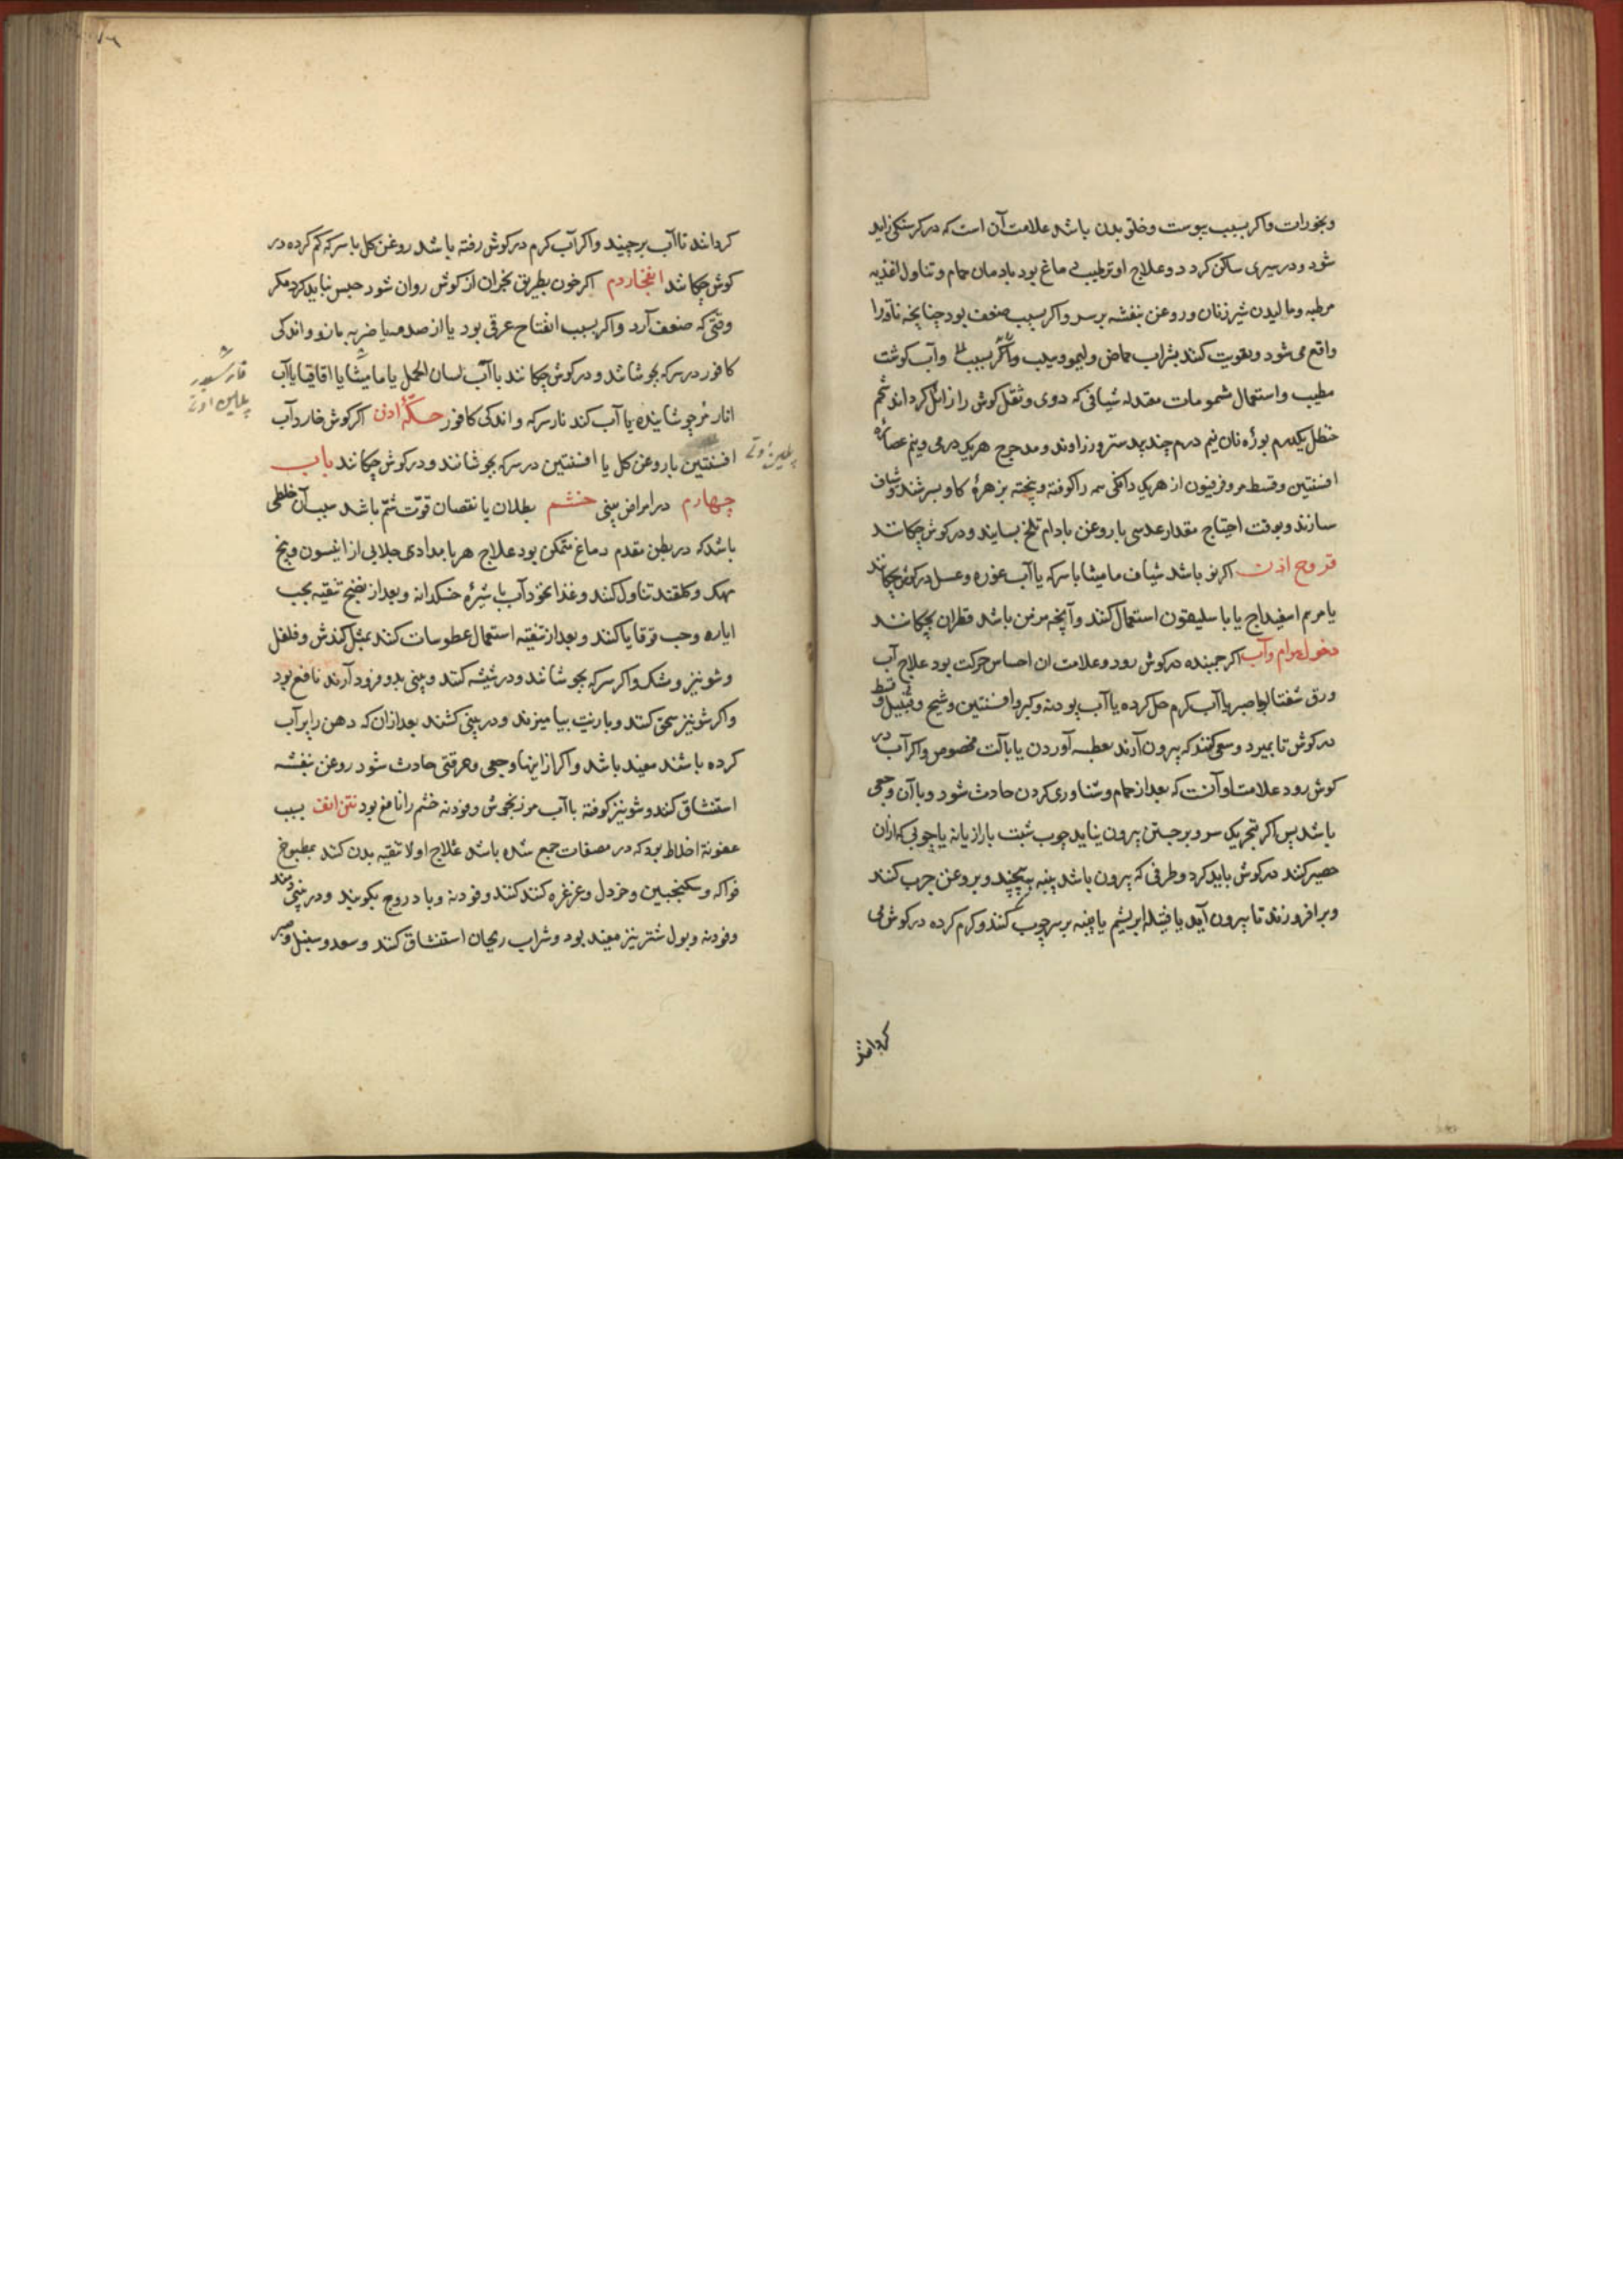 وبخورات واکر بسبب یبوست وخلو بدن باشد علامت آن است که در کرسنکی زاید
شود ودر سیری ساکن کردد وعلاج او ترطیب دماغ بود بادمان حمام وتناول اغذیه
مرطبه ومالیدن شیر زنان وروغن بنفشه بر سر واکر بسبب ضعف بود چنانچه ناقه را
واقع می شود وتقویت کنند بشراب حماض ولیمو وسیب واکر بسبب وآب کوشت
مطیب واستعمال شمومات معتدله شیافی که دوی وثقل کوش را زائل کرداند شحم
حنظل یکدرم بوره نان نیم درم جندبیدستر وزراوند ومدحرج هریک درمی ونیم عصاره
افسنتین وقسط مر وفرفیون از هریک دانکی همه را کوفته وبیخته بزهرهٔ کاو بسرشند وشیاف
سازند وبوقت احتیاج مقدار عدسی با روغن بادام تلخ بسایند ودر کوش چکانند
قروح اذن اکر نو باشد شیاف مامیثا با سرکه یا آب غوره وعسل در کوش چکانند
یا مرهم اسفیداج یا باسلیقون استعمال کنند وآنچه مزمن باشد قطران بچکانند
دخول هوام وآب اکر جمبنده در کوش رود وعلامت ان احساس حرکت بود علاج آب
ورق شفتالو یا صبر با آب کرم حل کرده یا آب پودنه وکبر وافسنتین وشیح وقنبیل وقسط
در کوش تا بمیرد وسعی کنند که بیرون آرند بعطسه آوردن یا بآلت مخصوص واکر آب در
کوش رود علامت او آنست که بعد از حمام وشناوری کردن حادث شود وبا آن وجعی
باشد پس اکر بتحریک سر وبرجستن بیرون نیاید چوب شبت یا رازیانه یا چوبی که ازان
حصیر کنند در کوش باید کرد وطرفی که بیرون باشد پنبه بپیچند وبروغن چرب کنند
وبرافروزند تا بیرون آید یا فتیله ابریشم یا پنبه بر سر چوب کنند وکرم کرده در کوش می
کردانند
کردانند تا آب برچیند واکر آب کرم در کوش رفته باشد روغن کل با سرکه کرم کرده در
کوش چکانند انفجار دم اکر خون بطریق بحران از کوش روان شود حبس نباید کرد مکر
وقتی که ضعف آرد واکر بسبب انفتاح عرقی بود یا از صدمه یا ضربه مازو واندکی
کافور در سرکه بجوشانند ودر کوش چکانند با آب لسان الحمل یا مامیثا یا اقاقیا یا آب
انار مر جوشانیده یا آب کندنا سرکه واندکی کافور حکّهٔ اذن اکر کوش خارد آب
افسنتین با روغن کل یا افسنتین در سرکه بجوشانند ودر کوش چکانند باب
چهارم در امراض بینی خشم بطلان یا نقصان قوّت شمّ باشد سبب آن خلطی
باشد که در بطن مقدم دماغ متمکن بود علاج هر بامدادی جلابی از انیسون وبیخ
مهک وکلقند تناول کنند وغذا نخودآب با شیرهٔ خسکدانه وبعد از نضج تنقیه بحب
ایاره وحب قوقایا کنند وبعد از تنقیه استعمال عطوسات کنند بمثل کندش وفلفل
وشونیز ومشک واکر سرکه بجوشانند ودر شیشه کنند وبینی بدو فرود آرند نافع بود
واکر شونیز سحق کنند وبا زیت بیامیزند ودر بینی کشند بعد ازان که دهن را پر آب
کرده باشند مفید باشد واکر از اینها وجعی وحرقتی حادث شود روغن بنفشه
استنشاق کنند وشونیز کوفته با آب مرزنجوش وفودنه خشم را نافع بود نتن انف بسبب
عفونة اخلاط بود که در مصفات جمع شده باشد علاج اولا تنقیه بدن کنند بمطبوخ
فواکه وسکنجبین وخردل وغرغره کنند کنند وفودنه وبادروج بکوبند ودر بینی دمند
وفودنه وبول شتر نیز مفید بود وشراب ریحان استنشاق کنند وسعد وسنبل وصبر